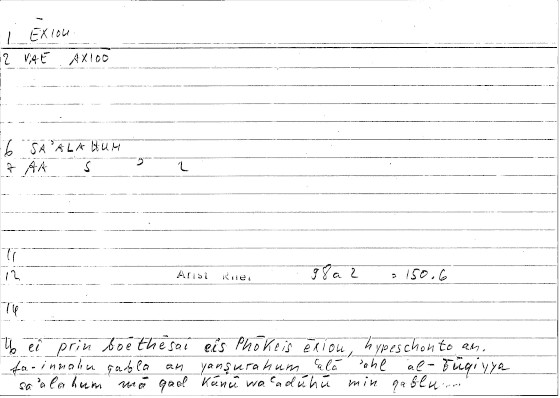 1 ĒXIOU
2 VAE AXIOO
6 SA'ALAHUM
7 AA S ' L
11
12 Arist Rhet 98a2 = 150.6
14
16 ei prin boēthēsai eis Phōkeis ēxiou, hypeschonto an.
fa-innahu qabla an yanṣurahum ʿalā ʾahl al-Fūqiyya
saʾalahum mā qad kānū waʿadūhū min qablu....